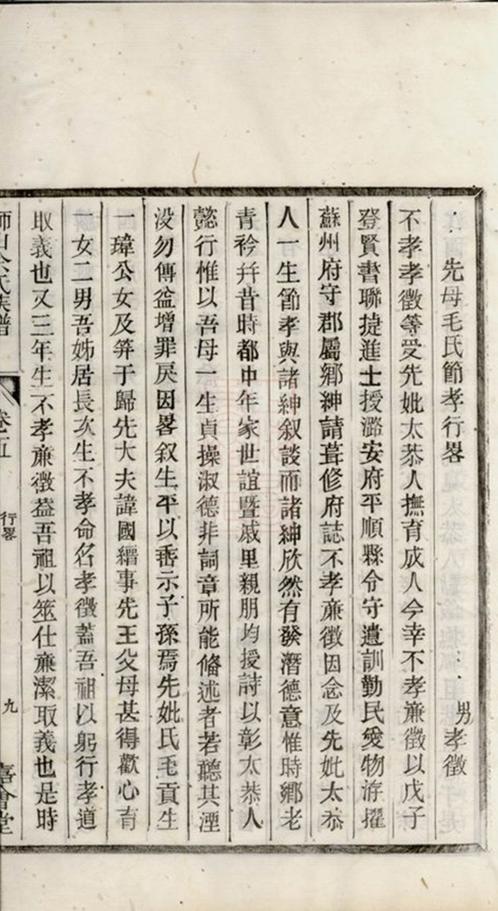 先母毛氏節孝行畧
男孝徵
不孝孝徵等受先妣太恭人撫育成人今幸不孝亷徵以戊子
登賢書聯捷進士授潞安府平順縣令守遺訓勤民愛物洊擢
蘇州府守郡屬鄉紳請葺修府誌不孝亷徵因念及先妣太恭
人一生節孝與諸紳叙談而諸紳欣然有發潛德意惟時鄉老
青衿幷昔時都中年家世誼暨戚里親朋均授詩以彰太恭人
懿行惟以吾母一生貞操淑德非詞章所能偹述者若聽其湮
没勿傳益增罪戾因畧叙生平以垂示子孫焉先妣氏毛貢生
一瑋公女及笄于歸先大夫諱國縉事先王父母甚得歡心育
一女二男吾姊居長次生不孝命名孝徵蓋吾祖以躬行孝道
取義也又三年生不孝亷徵葢吾祖以筮仕亷潔取義也是時
氏族譜
卷五
行畧
九
會堂